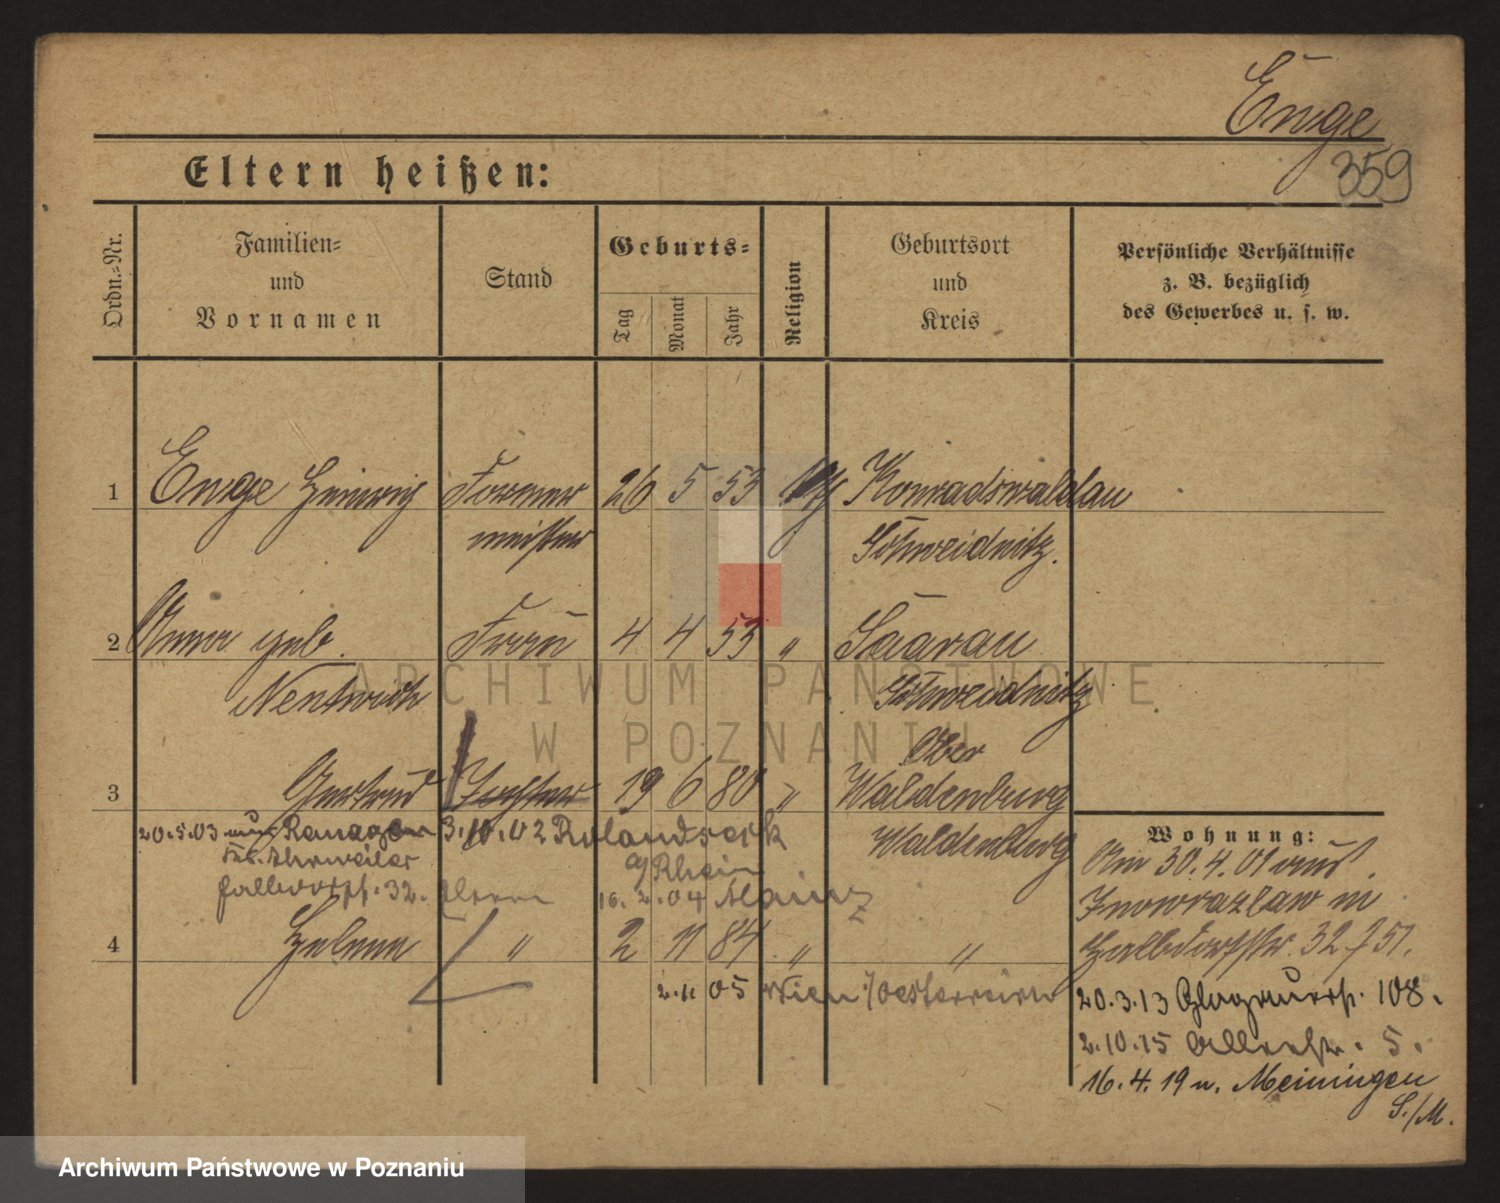 Enge
359
Eltern heißen:
Ordn.-Nr.
Familien-
und
Vornamen
Stand
Geburts-
Tag
Monat
Jahr
Religion
Geburtsort
und
Kreis
Persönliche Verhältnisse
z. B. bezüglich
des Gewerbes u. s. w.
1 Enge Heinrich Former 26 5 53 Konradswaldau
meister Schweidnitz.
2 Anna geb. Frau 4 4 53 " Saarau
Nentwich Schweidnitz
Ober
3 Gertrud Tochter 19 6 80 " Waldenburg
Waldenburg
20.5.03 Remagen 3.10.02 Rolandseck
Ahrweiler a/Rhein
Halbdorfst. 32. Eltern 16.2.04 Mainz
4 Helene " 2 11 84 " "
2.11 05 Wien /Oesterreich
Wohnung:
Am 30.4.01 aus
Inowrazlaw in
Halbdorfstr. 32 b 51.
20.3.13 Glogauerst. 108.
2.10.15 5.
16.4.19 n. Meiningen
S./M.
ARCHIWUM PAŃSTWOWE
W POZNANIU
Archiwum Państwowe w Poznaniu